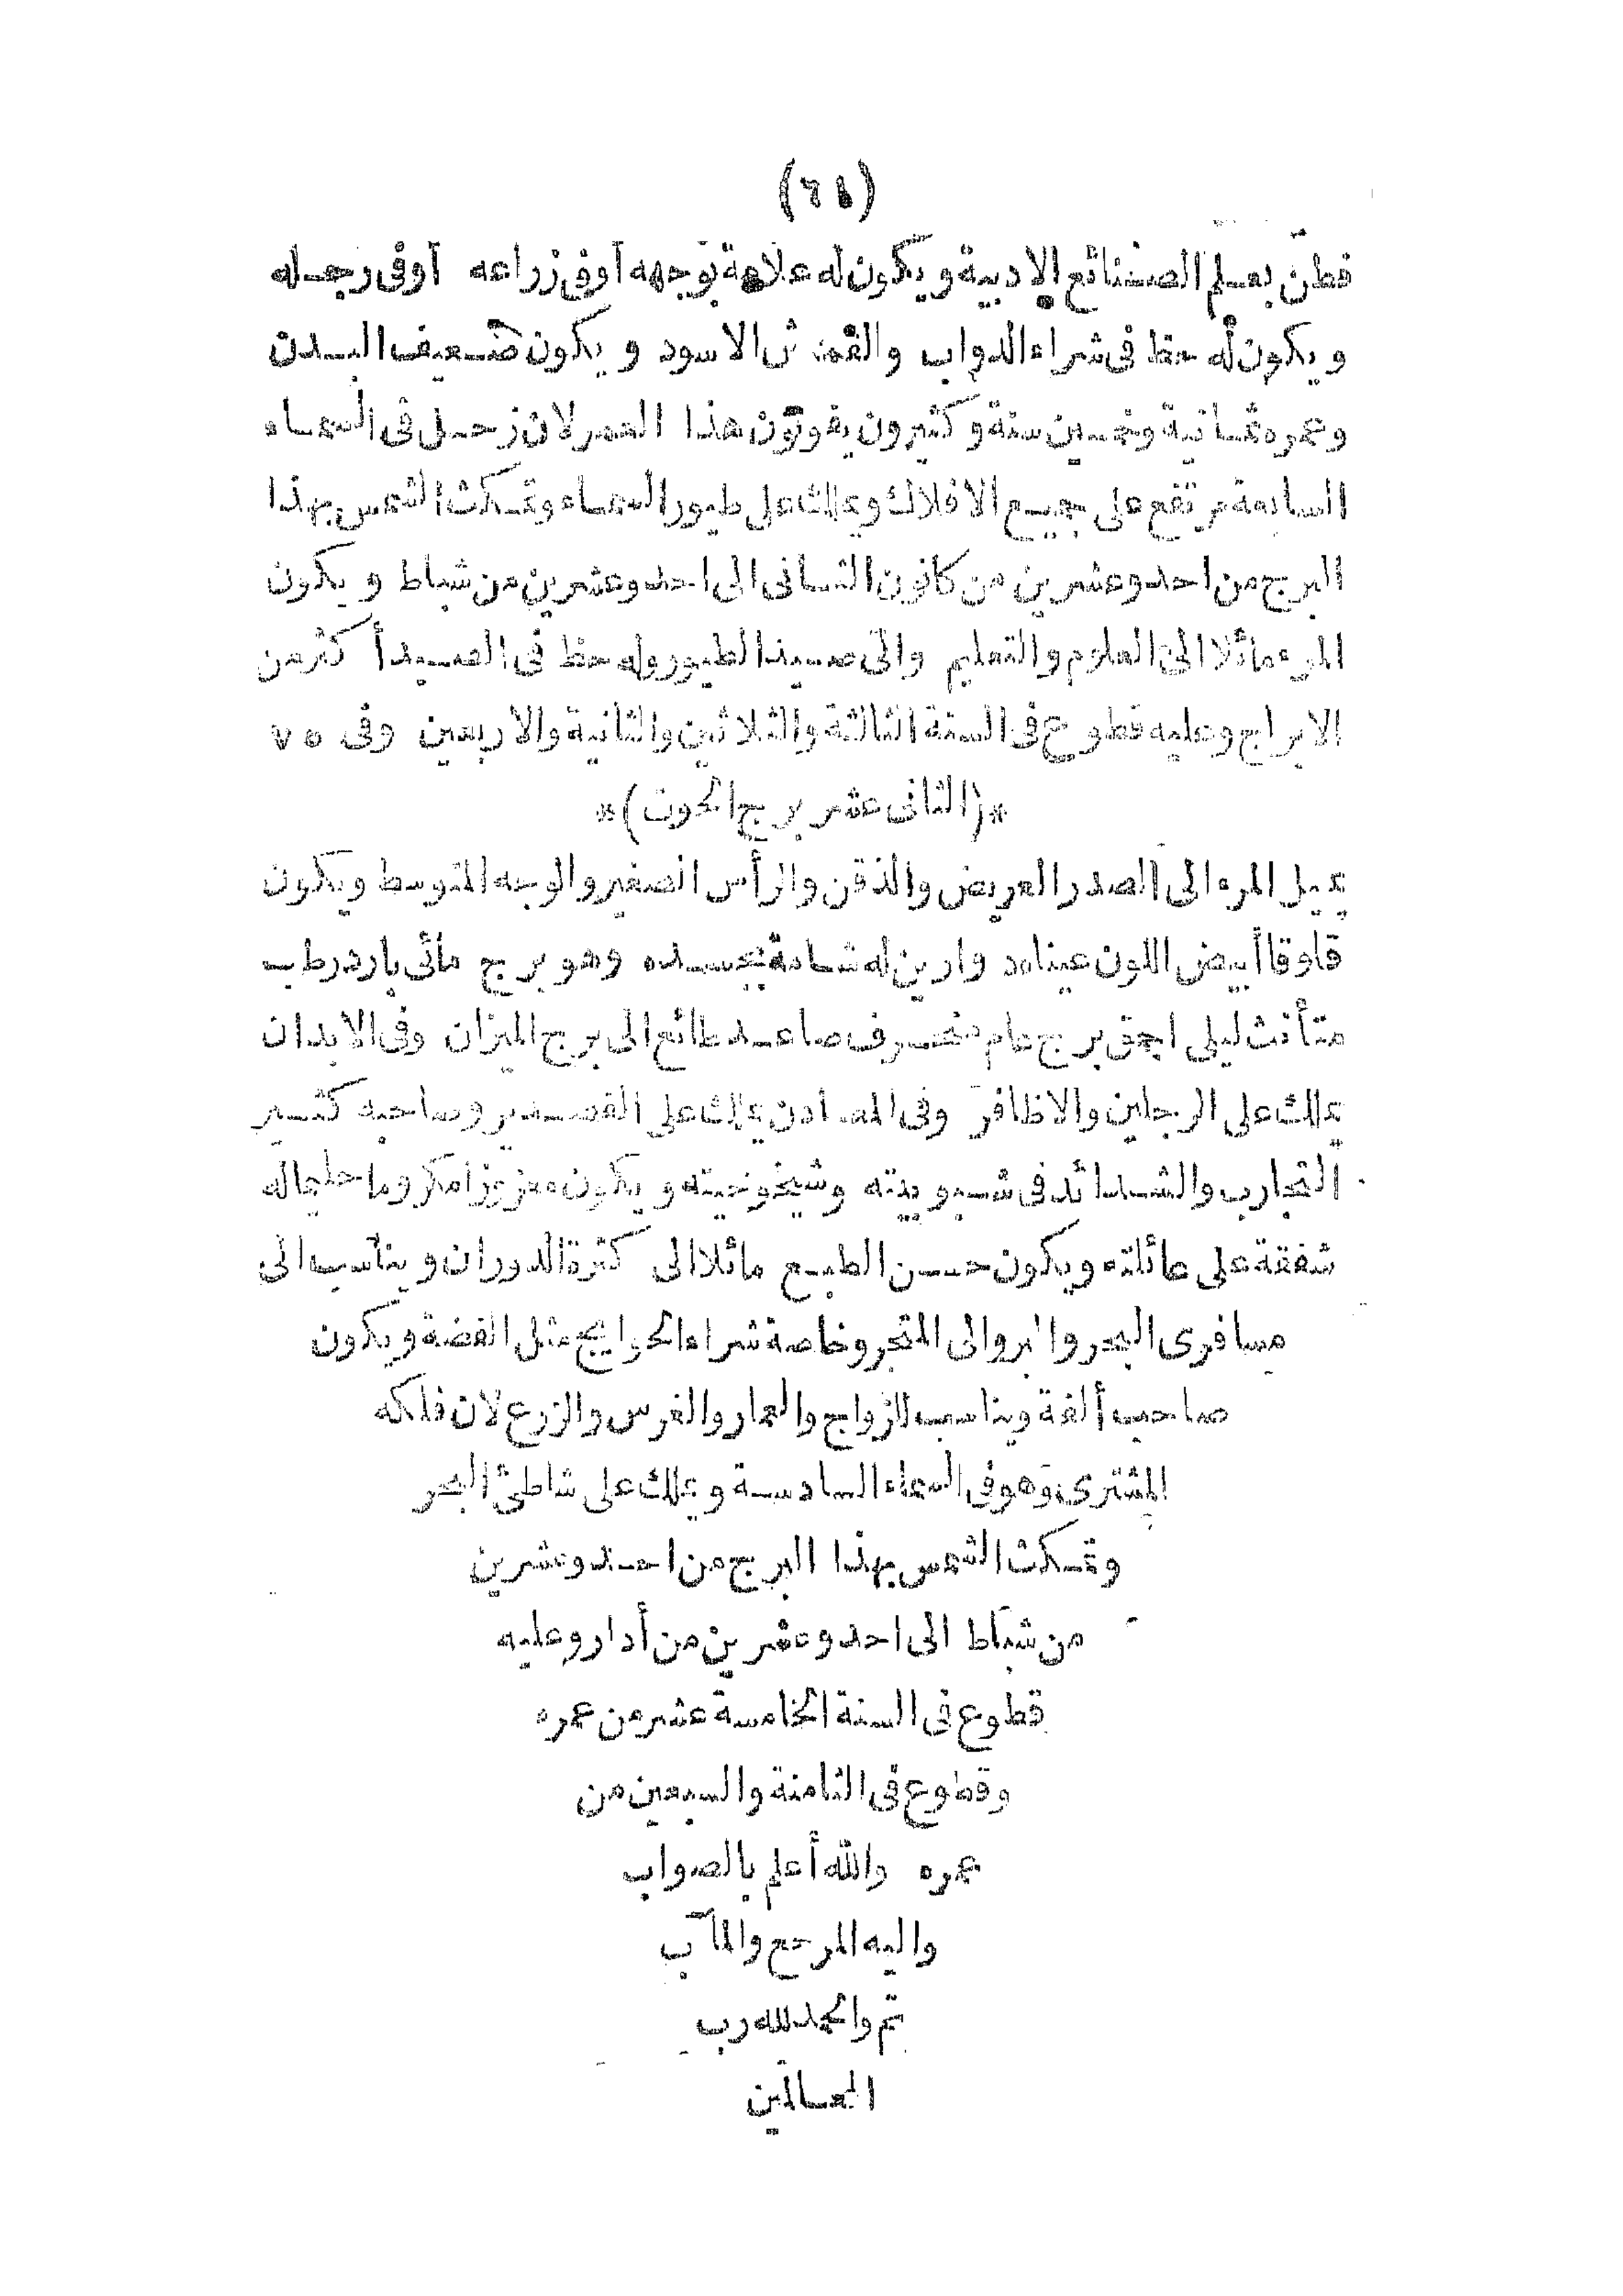 فطن بعلم الصنائع الادبية ويكون له علامة بوجهه أوفى زراعه أوفى رجله
ويكون له حظ فى شراء الدواب والقماش الاسود ويكون ضعيف البدن
وعمره ثمانية وخمسين سنة وكثيرون يفوتون هذا العمر لان زحل فى السماء
السابعة مرتفع على جميع الافلاك ويملك على طيور السماء وتمكث الشمس بهذا
البرج من احد وعشرين من كانون الثانى الى احد وعشرين من شباط ويكون
المرء مائلا الى العلوم والتعليم والى صيد الطيور وله حظ فى الصيد أكثر من
الابراج وعليه قطوع فى السنة الثالثة والثلاثين والثانية والاربعين وفى ٧٥
*(الثانى عشر برج الحوت)*
يميل المرء الى الصدر العريض والذقن والرأس الصغير والوجه المتوسط ويكون
قاوقا أبيض اللون عيناه دوارين له شامة بجسده وهو برج مائى بارد رطب
متأنث ليلى احمق برج عام منحرف صاعد طائع الى برج الميزان وفى الابدان
يملك على الرجلين والاظافر وفى المعادن يملك على القصدير وصاحبه كثير
التجارب والشدائد فى شبوبيته وشيخوخيته ويكون معزوزا مكروما حليما له
شفقة على عائلته ويكون حسن الطبع مائلا الى كثرة الدوران ويناسب الى
مسافرى البحر والبر والى المتجر وخاصة شراء الحوايج مثل الفضة ويكون
صاحب ألفة ويناسب للزواج والعمار والغرس والزرع لان فلكه
المشترى وهو فى السماء السادسة ويملك على شاطئ البحر
وتمكث الشمس بهذا البرج من احد وعشرين
من شباط الى احد وعشرين من أدار وعليه
قطوع فى السنة الخامسة عشر من عمره
وقطوع فى الثامنة والسبعين من
عمره والله أعلم بالصواب
واليه المرجع والمآب
تم والحمد لله رب
العالمين